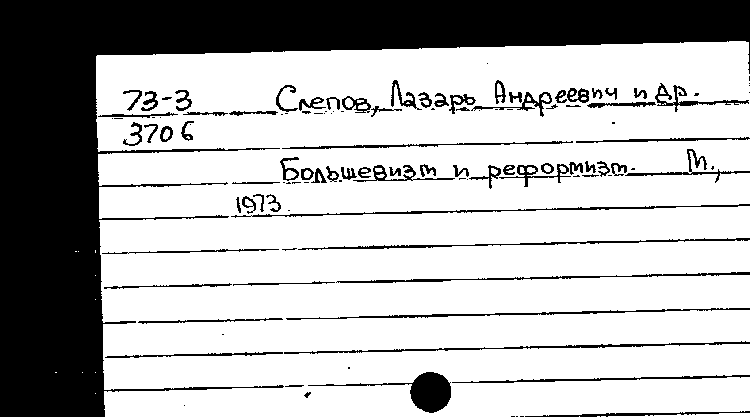 73-3 Слепов, Лазарь Андреевич и др.
3706
Большевизм и реформизм. М.,
1973.